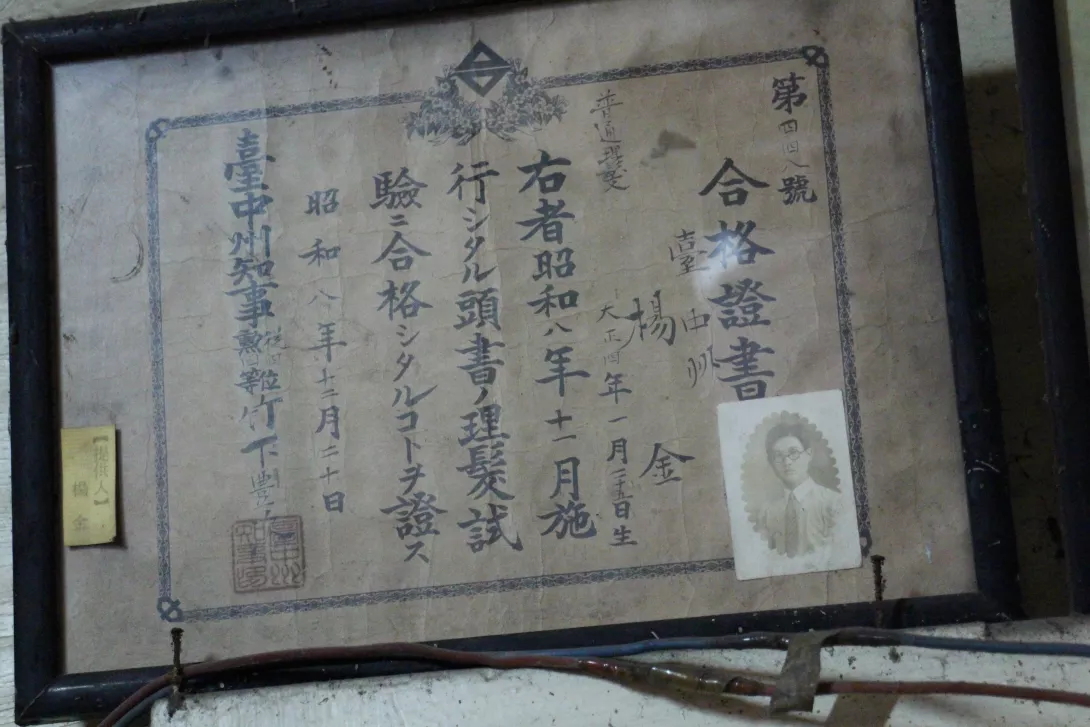 第四四八號
合格證書
臺中州
楊金
大正四年一月二十五日生
普通理髮
右者昭和八年十一月施
行シタル頭書ノ理髮試
驗ニ合格シタルコトヲ證ス
昭和八年十二月二十日
臺中州知事 勲四等 竹下豐
【提供人】
楊金